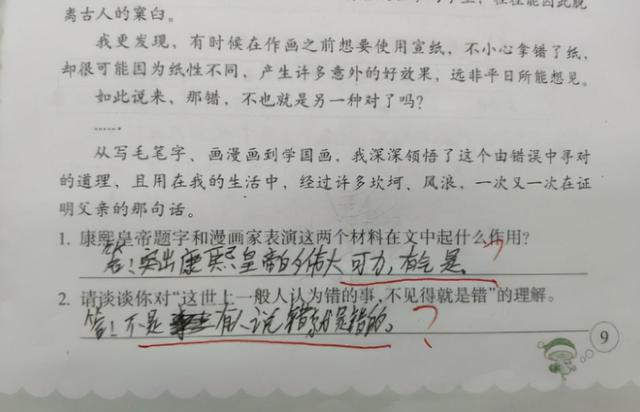 离古人的窠臼。
我更发现，有时候在作画之前想要使用宣纸，不小心拿错了纸，
却很可能因为纸性不同，产生许多意外的好效果，远非平日所能想见。
如此说来，那错，不也就是另一种对了吗？
……
从写毛笔字、画漫画到学国画，我深深领悟了这个由错误中寻对
的道理，且用在我的生活中，经过许多坎坷、风浪，一次又一次在证
明父亲的那句话。
1. 康熙皇帝题字和漫画家表演这两个材料在文中起什么作用？
答：突出康熙皇帝的伟大
2. 请谈谈你对“这世上一般人认为错的事，不见得就是错”的理解。
答：不是 有人说错就是错的。
9